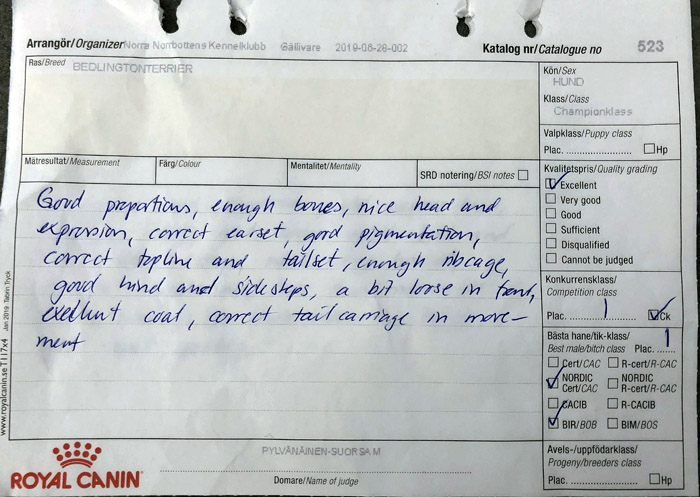 Arrangör/Organizer Norra Norrbottens Kennelklubb Gällivare 2019-06-28-002 Katalog nr/Catalogue no 523
Ras/Breed BEDLINGTONTERRIER
Kön/Sex
HUND
Klass/Class
Championklass
Valpklass/Puppy class
Plac. .................... Hp
Mätresultat/Measurement Färg/Colour Mentalitet/Mentality SRD notering/BSI notes
Kvalitetspris/Quality grading
Excellent
Very good
Good
Sufficient
Disqualified
Cannot be judged
Good proportions, enough bones, nice head and
expression, correct earset, good pigmentation,
correct topline and tailset, enough ribcage,
good hind and sidesteps, a bit loose in front,
exellent coat, correct tail carriage in move-
ment
Konkurrensklass/
Competition class
Plac. 1 Ck
Bästa hane/tik-klass/
Best male/bitch class Plac. 1
Cert/CAC R-cert/R-CAC
NORDIC Cert/CAC NORDIC R-cert/R-CAC
CACIB R-CACIB
BIR/BOB BIM/BOS
Avels-/uppfödarklass/
Progeny/breeders class
Plac. .................... Hp
www.royalcanin.se T117x4 Jan 2019 Tabrin Tryck
ROYAL CANIN
PYLVÄNÄINEN-SUORSA M
Domare/Name of judge